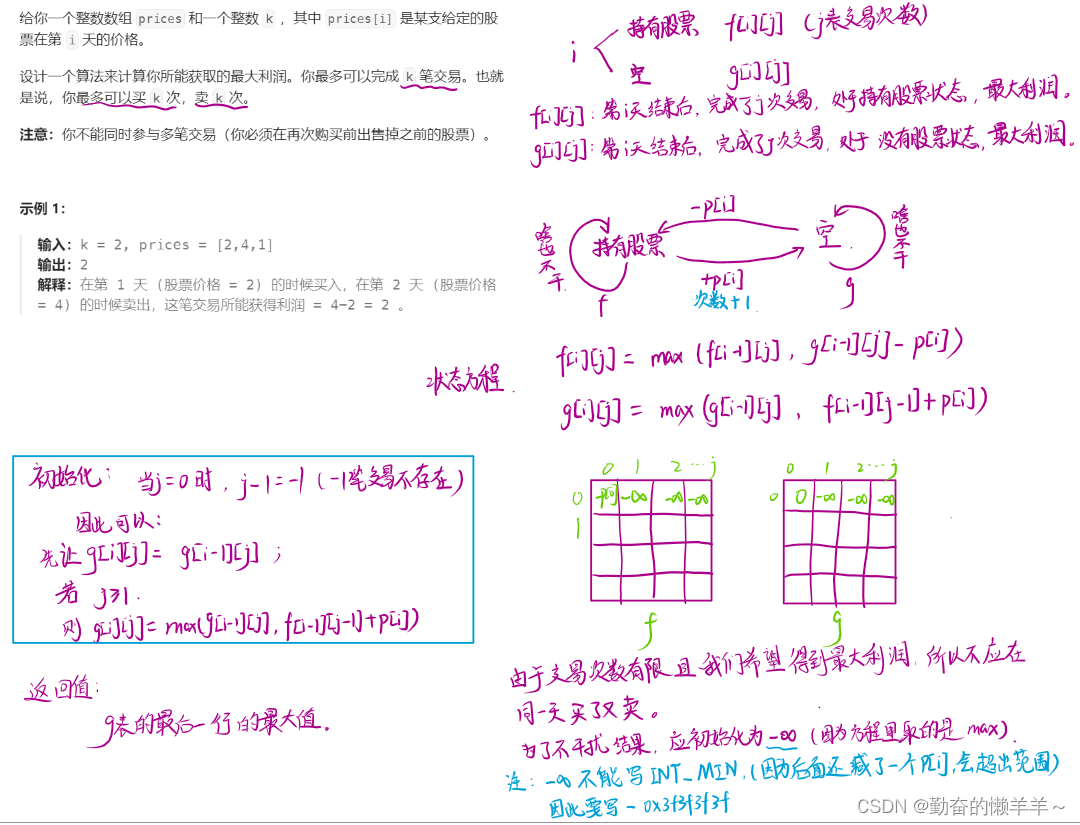 给你一个整数数组 prices 和一个整数 k ，其中 prices[i] 是某支给定的股
票在第 i 天的价格。
设计一个算法来计算你所能获取的最大利润。你最多可以完成 k 笔交易。也就
是说，你最多可以买 k 次，卖 k 次。
注意：你不能同时参与多笔交易（你必须在再次购买前出售掉之前的股票）。
示例 1：
输入：k = 2, prices = [2,4,1]
输出：2
解释：在第 1 天 (股票价格 = 2) 的时候买入，在第 2 天 (股票价格
= 4) 的时候卖出，这笔交易所能获得利润 = 4-2 = 2 。
i
持有股票 f[i][j] (j表交易次数)
空 g[i][j]
f[i][j]：第i天结束后，完成了j次交易，处于持有股票状态，最大利润。
g[i][j]：第i天结束后，完成了j次交易，处于 没有股票状态，最大利润。
-p[i]
啥也不干
持有股票
空
啥也不干
+p[i]
次数+1
f
g
状态方程
f[i][j] = max (f[i-1][j] , g[i-1][j] - p[i])
g[i][j] = max (g[i-1][j] , f[i-1][j-1]+p[i])
初始化： 当j=0时，j-1=-1 (-1笔交易不存在)
因此可以：
先让 g[i][j] = g[i-1][j] ;
若 j≥1.
则 g[i][j]=max(g[i-1][j], f[i-1][j-1]+p[i])
返回值：
g表的最后一行的最大值.
0 1 2 ... j
0 -p[0] -∞ -∞ -∞
1
f
0 1 2 ... j
0 0 -∞ -∞ -∞
g
由于交易次数有限且我们希望得到最大利润，所以不应在
同一天买了又卖。
为了不干扰结果，应初始化为 -∞ (因为方程里取的是 max).
注：-∞ 不能写 INT_MIN, (因为后面还减了一个P[i], 会超出范围)
因此要写 - 0x3f3f3f3f
CSDN @勤奋的懒羊羊～